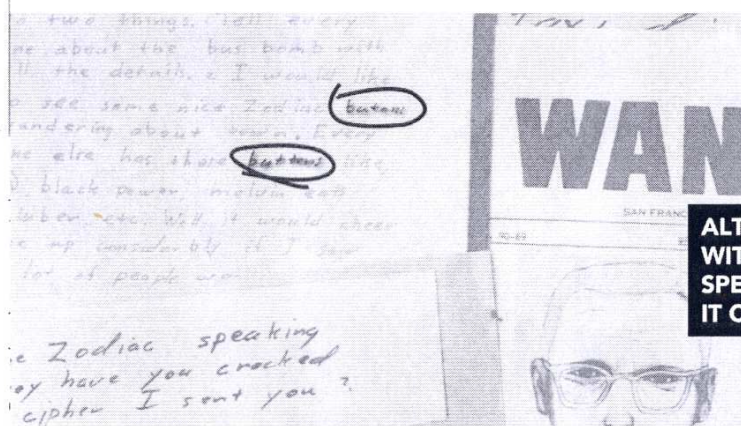 two things. Tell every
ne about the bus bomb with
ll the details. 2 I would like
o see some nice Zodiac butons
andering about town. Every
ne else has these buttons like,
black power, melvin eats
luber etc. Well it would cheer
e up considerbly if I saw
lot of people we
e Zodiac speaking
ey have you cracked
cipher I sent you ?
WAN
SAN FRANC
90-69
ALT
WIT
SPE
IT C